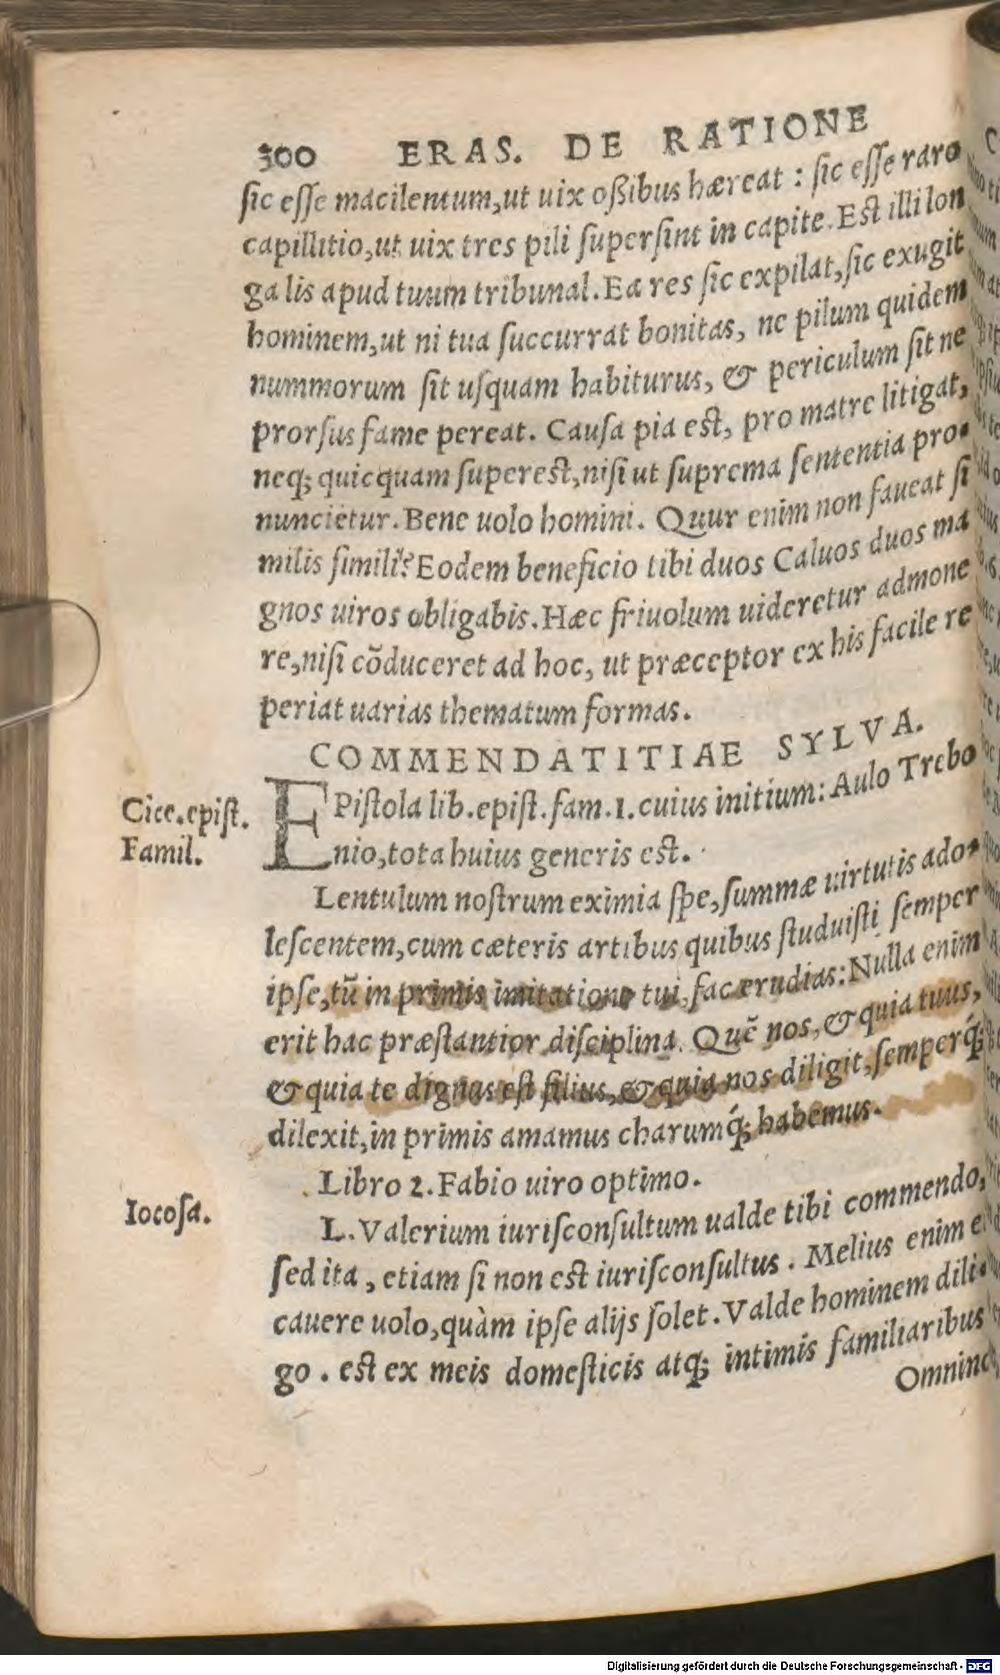 300 ERAS. DE RATIONE
sic esse macilentum,ut uix oßibus hæreat : sic esse raro
capillitio,ut uix tres pili supersint in capite. Est illi lon
ga lis apud tuum tribunal. Ea res sic expilat,sic exugit
hominem,ut ni tua succurrat bonitas, ne pilum quidem
nummorum sit usquam habiturus, & periculum sit ne
prorsus fame pereat. Causa pia est, pro matre litigat,
neq; quicquam superest,nisi ut suprema sententia pro-
nuncietur. Bene uolo homini. Quur enim non faueat si
milis simili? Eodem beneficio tibi duos Caluos duos ma
gnos uiros obligabis. Hæc friuolum uideretur admone
re,nisi cõduceret ad hoc, ut præceptor ex his facile re
periat uarias thematum formas.
COMMENDATITIAE SYLVA.
Cice.epist.
Famil.
EPistola lib.epist.fam.1.cuius initium: Aulo Trebo
nio,tota huius generis est.
Lentulum nostrum eximia spe,summæ uirtutis ado-
lescentem,cum cæteris artibus quibus studuisti semper
ipse,tũ in primis imitatione tui,fac erudias: Nulla enim
erit hac præstantior disciplina. Quẽ nos,& quia tuus,
& quia te dignus est filius,& quia nos diligit,semperq́;
dilexit,in primis amamus charumq́; habemus.
Libro 2. Fabio uiro optimo.
Iocosa.
L. Valerium iurisconsultum ualde tibi commendo,
sed ita , etiam si non est iurisconsultus . Melius enim ei
cauere uolo,quàm ipse alijs solet. Valde hominem dili-
go . est ex meis domesticis atq; intimis familiaribus
Omnino
Digitalisierung gefördert durch die Deutsche Forschungsgemeinschaft - DFG